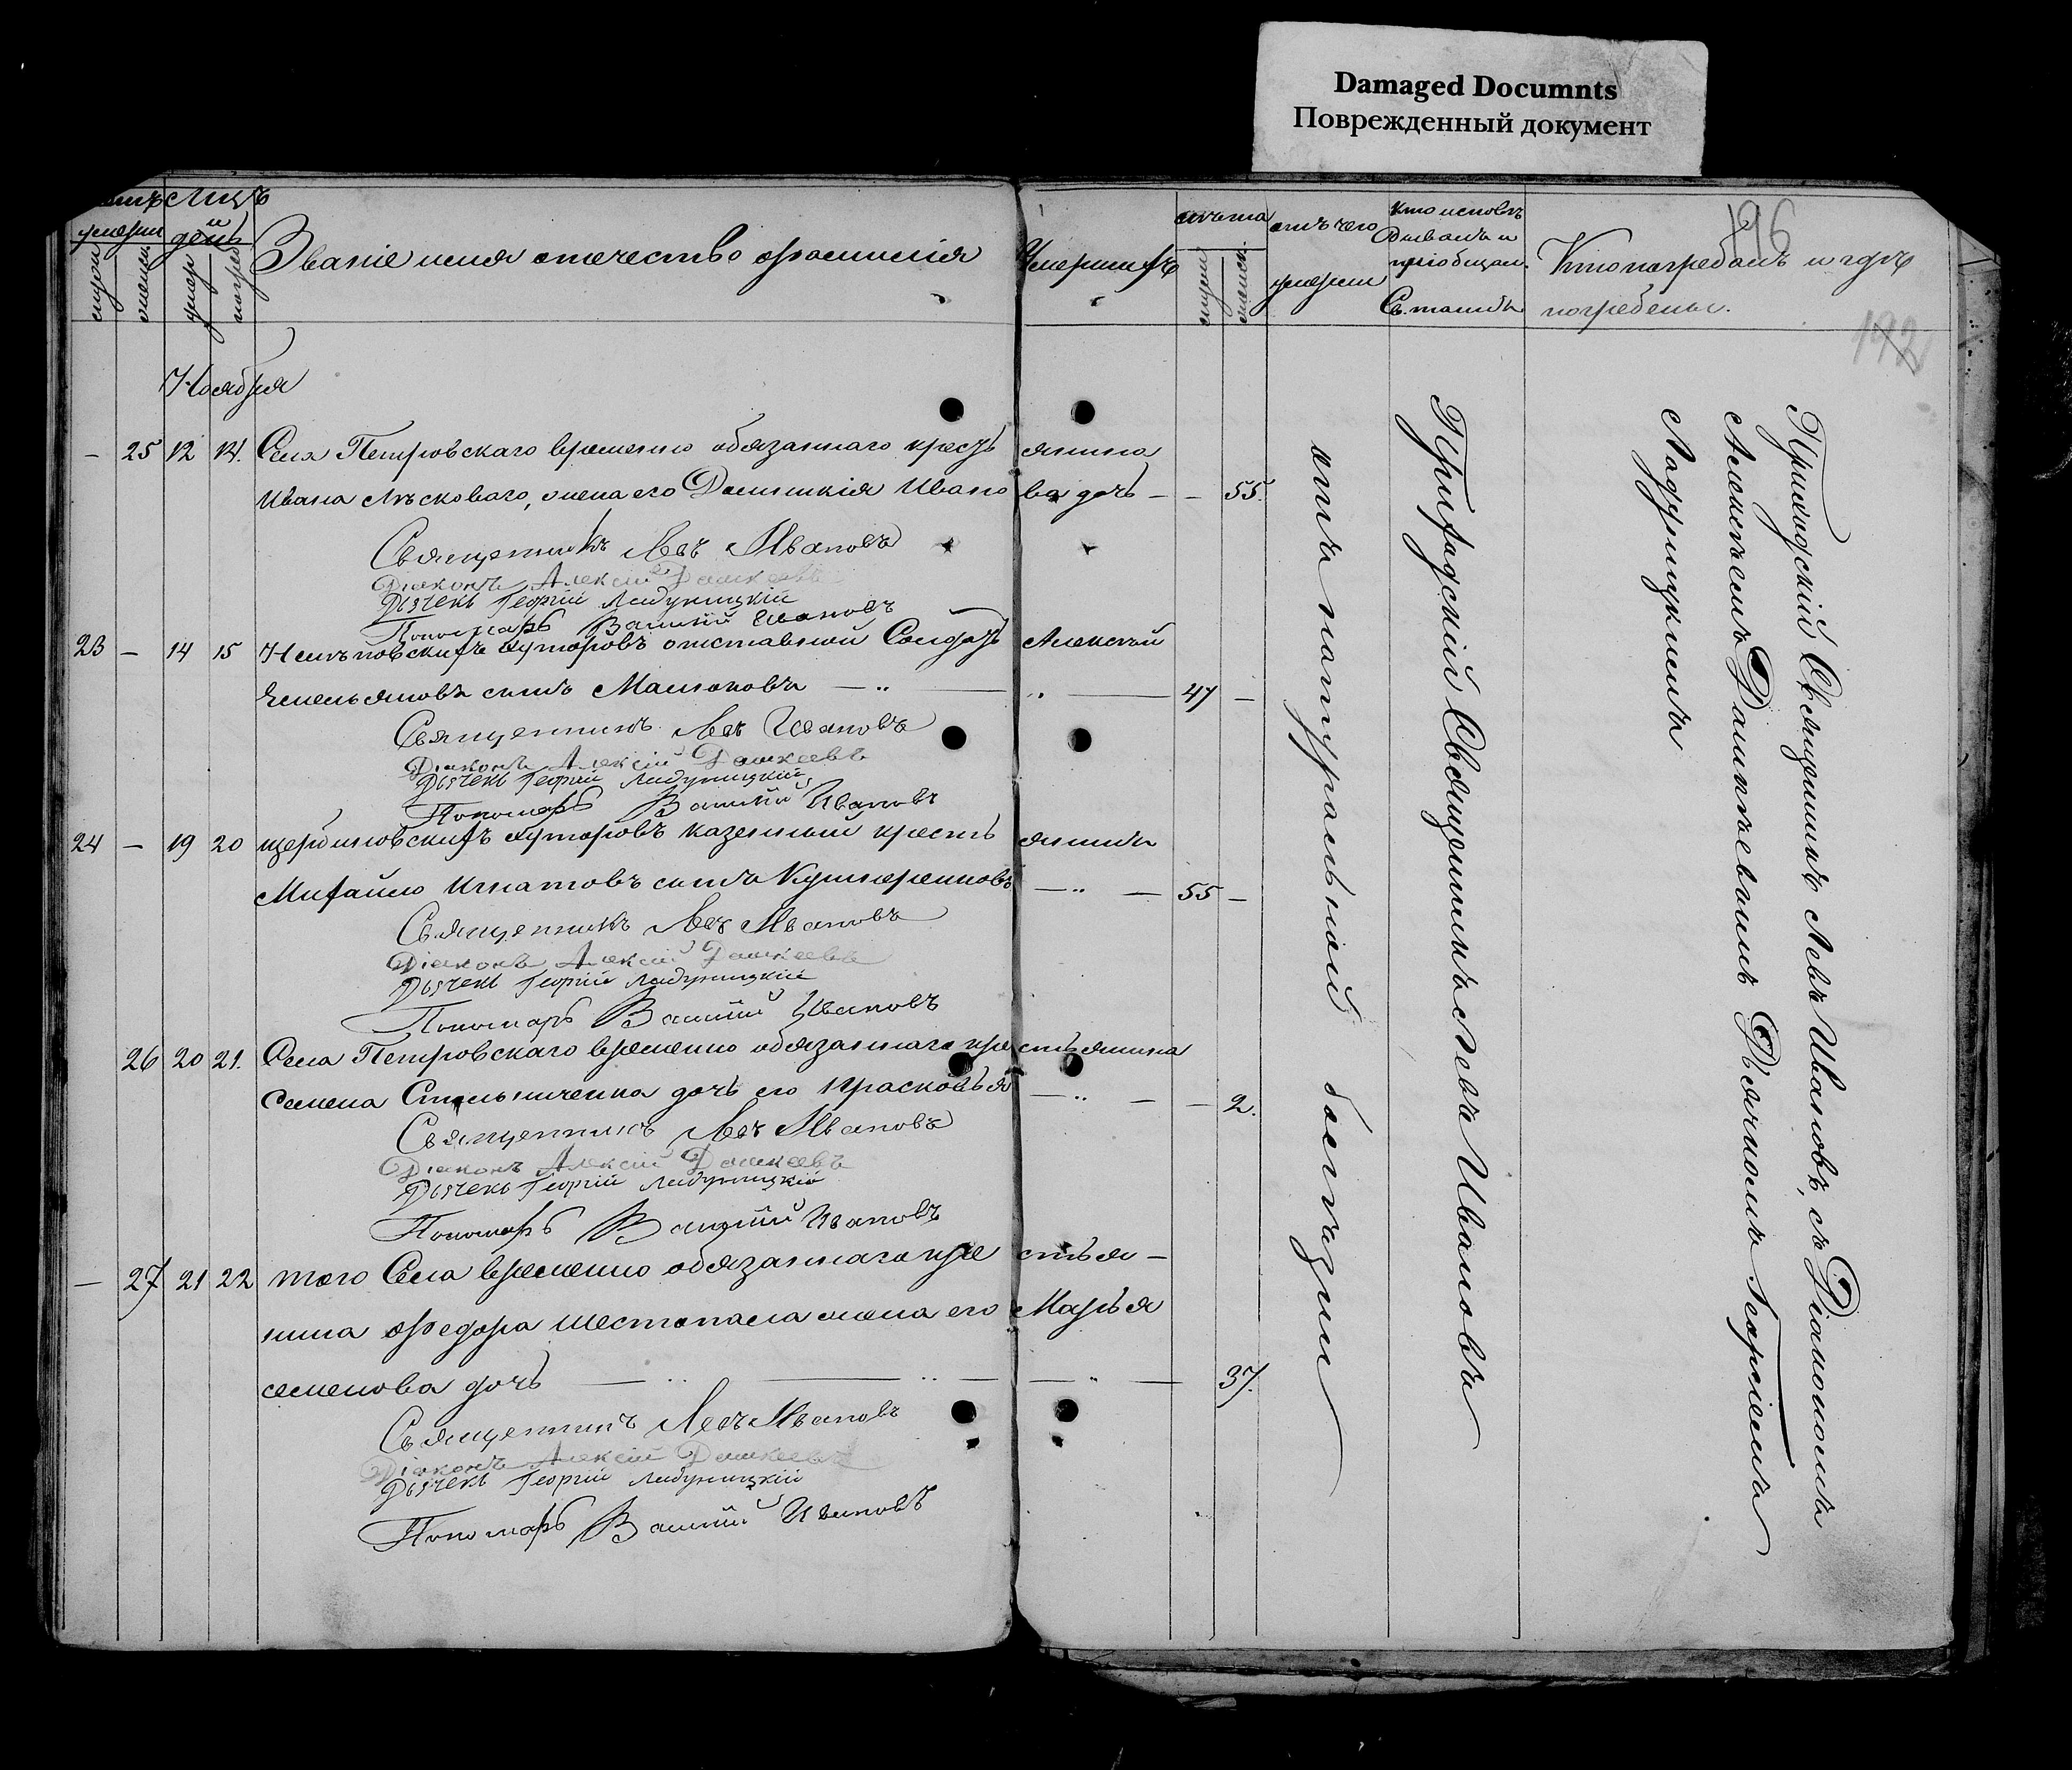 Damaged Documnts
Поврежденный документ
196
192
мѣсяцъ
и
умерш день
мужеска женска умер погреб
Званіе имя отечество фамилія Умершихъ
лѣта
мужеска женска
отъ чего
умерли
Кто исповѣ
дывалъ и
пріобщал.
Св. таинъ
Кто погребалъ и гдѣ
погребены.
Ноября
— 25 12 14. Села Петровскаго временно обязаннаго кресть янина
Ивана Лѣсковаго, жена его Домникія Ивано ва дочь — — 55.
Священникъ Левъ Ивановъ
Діаконъ Алексій Дашкеевъ
Дьячекъ Георгій Ладуницкій
Пономарь Василій Ивановъ
23 — 14 15 хуторовъ отставной Солдатъ Алексѣй
Емельяновъ сынъ Малюковъ — 47 —
Священникъ Левъ Ивановъ
Діаконъ Алексій Дашкеевъ
Дьячекъ Георгій Ладуницкій
Пономарь Василій Ивановъ
24 — 19 20 щербиновскихъ хуторовъ казенный кресть янинъ
Михайло Игнатовъ сынъ Кушнеренковъ — " — 55 —
Священникъ Левъ Ивановъ
Діаконъ Алексій Дашкеевъ
Дьячекъ Георгій Ладуницкій
Пономарь Василій Ивановъ
26 20 21. Села Петровскаго временно обязаннаго кре стьянина
Семена Стельниченка дочь его Прасковья — " — — 2.
Священникъ Левъ Ивановъ
Діаконъ Алексій Дашкеевъ
Дьячекъ Георгій Ладуницкій
Пономарь Василій Ивановъ
— 27 21 22 того Села временно обязаннаго кре стья —
нина Федора Шестопала жена его Марья
семенова дочь — " — 37.
Священникъ Левъ Ивановъ
Діаконъ Алексій Дашкеевъ
Дьячекъ Георгій Ладуницкій
Пономарь Василій Ивановъ
отъ натуральной болѣзни
Приходскій Священникъ Левъ Ивановъ
Приходскій Священникъ Левъ Ивановъ, съ Діакономъ
Алексѣемъ Дашкѣевымъ Дьячкомъ Георгіемъ
Ладуницкимъ